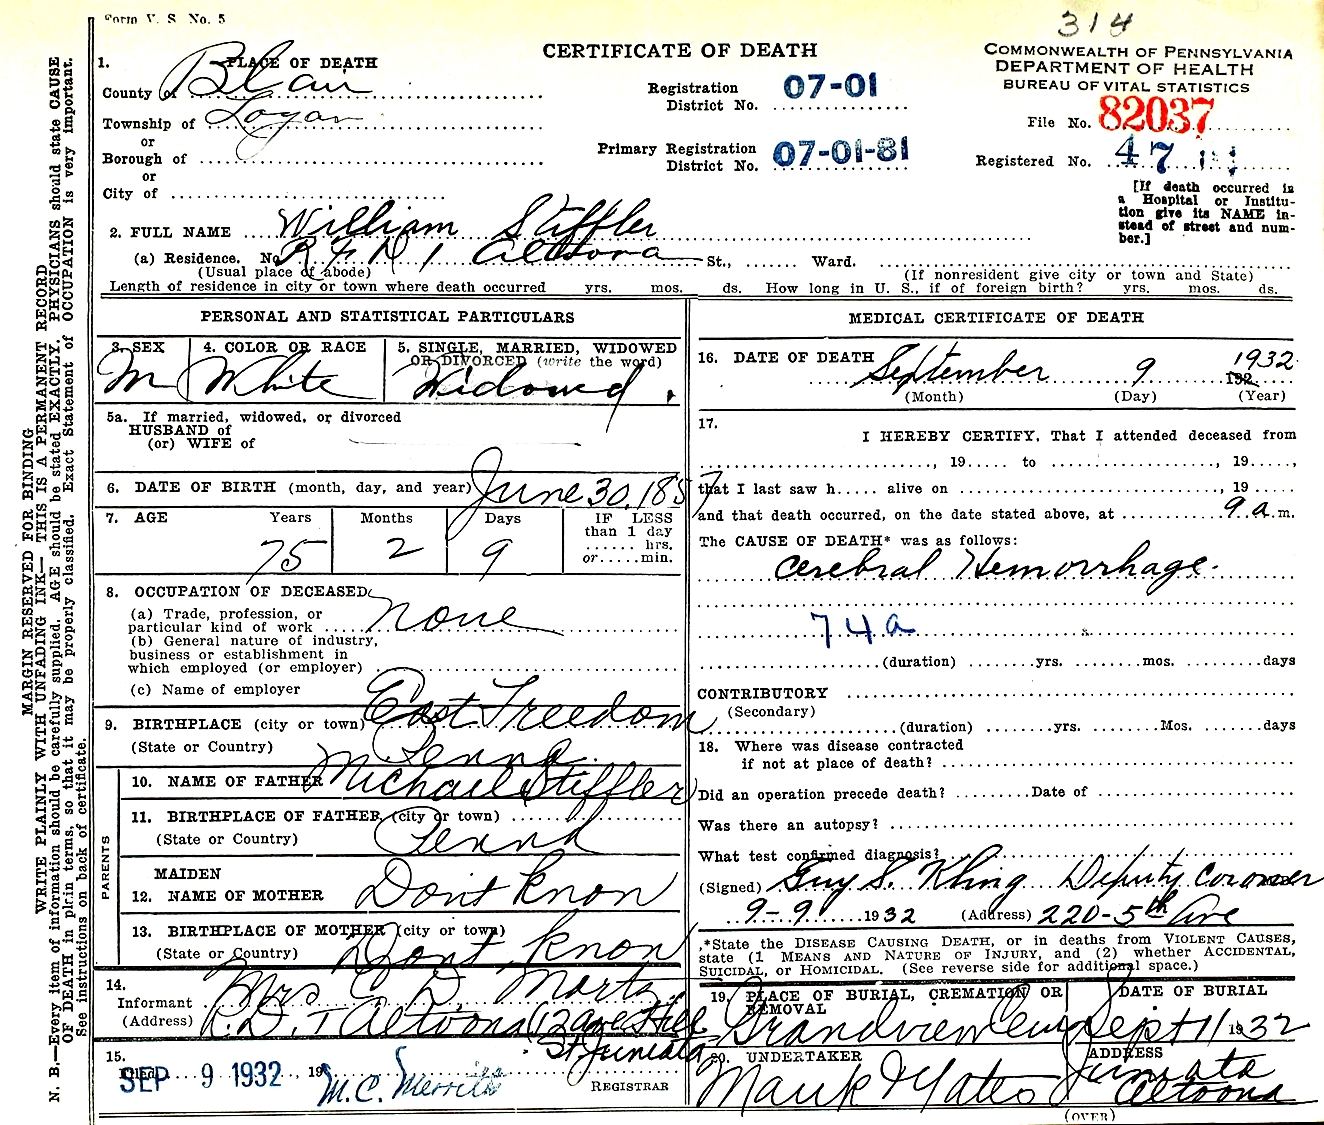 Form V. S. No. 5
314
CERTIFICATE OF DEATH
COMMONWEALTH OF PENNSYLVANIA
DEPARTMENT OF HEALTH
BUREAU OF VITAL STATISTICS
File No. 82037
Registered No. 47
[If death occurred in
a Hospital or Institu-
tion give its NAME in-
stead of street and num-
ber.]
1. PLACE OF DEATH
County of Blair
Township of Logan
or
Borough of
or
City of
Registration
District No. 07-01
Primary Registration
District No. 07-01-81
2. FULL NAME William Stiffler
(a) Residence. No. R F D 1 Altoona St., Ward.
(Usual place of abode)
(If nonresident give city or town and State)
Length of residence in city or town where death occurred yrs. mos. ds. How long in U. S., if of foreign birth? yrs. mos. ds.
PERSONAL AND STATISTICAL PARTICULARS
3. SEX M
4. COLOR OR RACE White
5. SINGLE, MARRIED, WIDOWED
OR DIVORCED (write the word)
Widowed.
5a. If married, widowed, or divorced
HUSBAND of
(or) WIFE of
6. DATE OF BIRTH (month, day, and year) June 30, 1857
7. AGE Years Months Days IF LESS
than 1 day
hrs.
or min.
75 2 9
8. OCCUPATION OF DECEASED
(a) Trade, profession, or
particular kind of work none
(b) General nature of industry,
business or establishment in
which employed (or employer)
(c) Name of employer
9. BIRTHPLACE (city or town) East Freedom
(State or Country) Penna.
PARENTS
10. NAME OF FATHER Michael Stiffler
11. BIRTHPLACE OF FATHER (city or town)
(State or Country) Penna
MAIDEN
12. NAME OF MOTHER Dont know
13. BIRTHPLACE OF MOTHER (city or town)
(State or Country) Dont know
14.
Informant Mrs
(Address) R.D. 1 Altoona
St. Juniata
15.
Filed SEP 9 1932 19 M. C. Merritts
REGISTRAR
MEDICAL CERTIFICATE OF DEATH
16. DATE OF DEATH September 9 1932
192
(Month) (Day) (Year)
17.
I HEREBY CERTIFY, That I attended deceased from
, 19 to , 19 ,
that I last saw h alive on , 19
and that death occurred, on the date stated above, at 9 a.m.
The CAUSE OF DEATH* was as follows:
Cerebral Hemorrhage.
74a
(duration) yrs. mos. days
CONTRIBUTORY
(Secondary)
(duration) yrs. Mos. days
18. Where was disease contracted
if not at place of death?
Did an operation precede death? Date of
Was there an autopsy?
What test confirmed diagnosis?
(Signed) Guy S. Kling Deputy Coroner
9-9 1932 (Address) 220-5th Ave
*State the DISEASE CAUSING DEATH, or in deaths from VIOLENT CAUSES,
state (1 MEANS AND NATURE OF INJURY, and (2) whether ACCIDENTAL,
SUICIDAL, or HOMICIDAL. (See reverse side for additional space.)
19. PLACE OF BURIAL, CREMATION OR
REMOVAL
Grandview Cem
DATE OF BURIAL
Sept 11 1932
20. UNDERTAKER
Mauk & Yates
ADDRESS
Juniata
Altoona
(OVER)
MARGIN RESERVED FOR BINDING
WRITE PLAINLY WITH UNFADING INK—THIS IS A PERMANENT RECORD
N. B.—Every item of information should be carefully supplied. AGE should be stated EXACTLY. PHYSICIANS should state CAUSE
OF DEATH in plain terms, so that it may be properly classified. Exact Statement of OCCUPATION is very important.
See instructions on back of certificate.